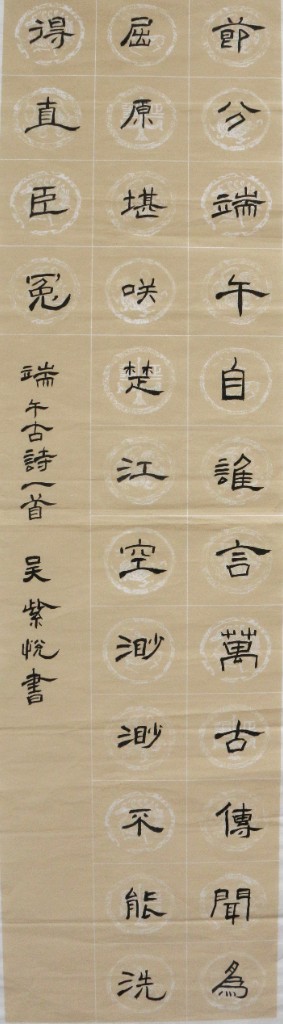 節分端午自誰言萬古傳聞為
屈原堪咲楚江空渺渺不能洗
得直臣冤
端午古詩一首 吴紫悅書